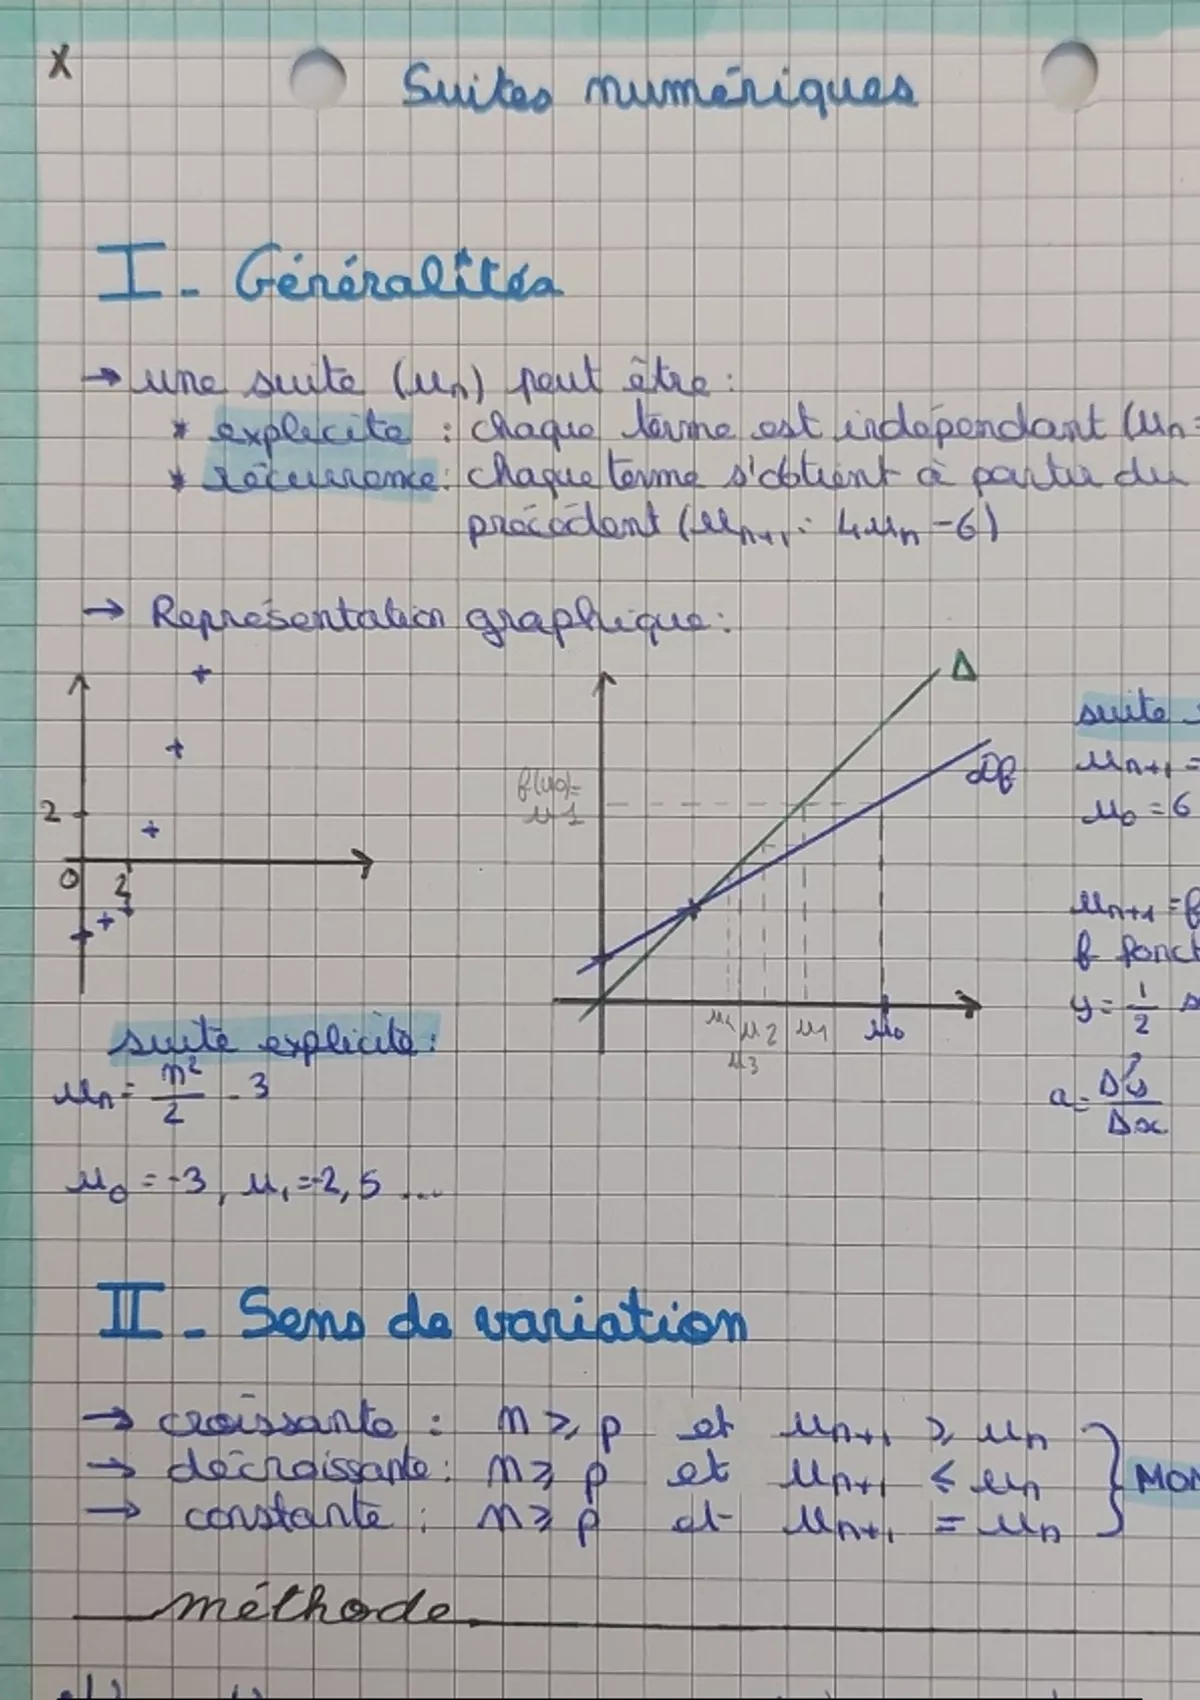 x
Suites numériques
I - Généralités
→ une suite (un) peut être :
* explicite : chaque terme est indépendant (un =
* récurrence : chaque terme s'obtient à partir du
précédent (un+1 = 4un - 6)
→ Représentation graphique :
Δ
Df
f(u0)=
u1
2
0
2
u4 u2 u1 u0
u3
suite explicite :
un = n²/2 - 3
u0 = -3, u1 = -2,5 ...
suite
un+1 =
u0 = 6
un+1 = f
f fonct
y = 1/2
a = Δy/Δx
II - Sens de variation
→ croissante : n ≥ p et un+1 ≥ un
→ décroissante : n ≥ p et un+1 ≤ un } MON
→ constante : n ≥ p et un+1 = un
méthode